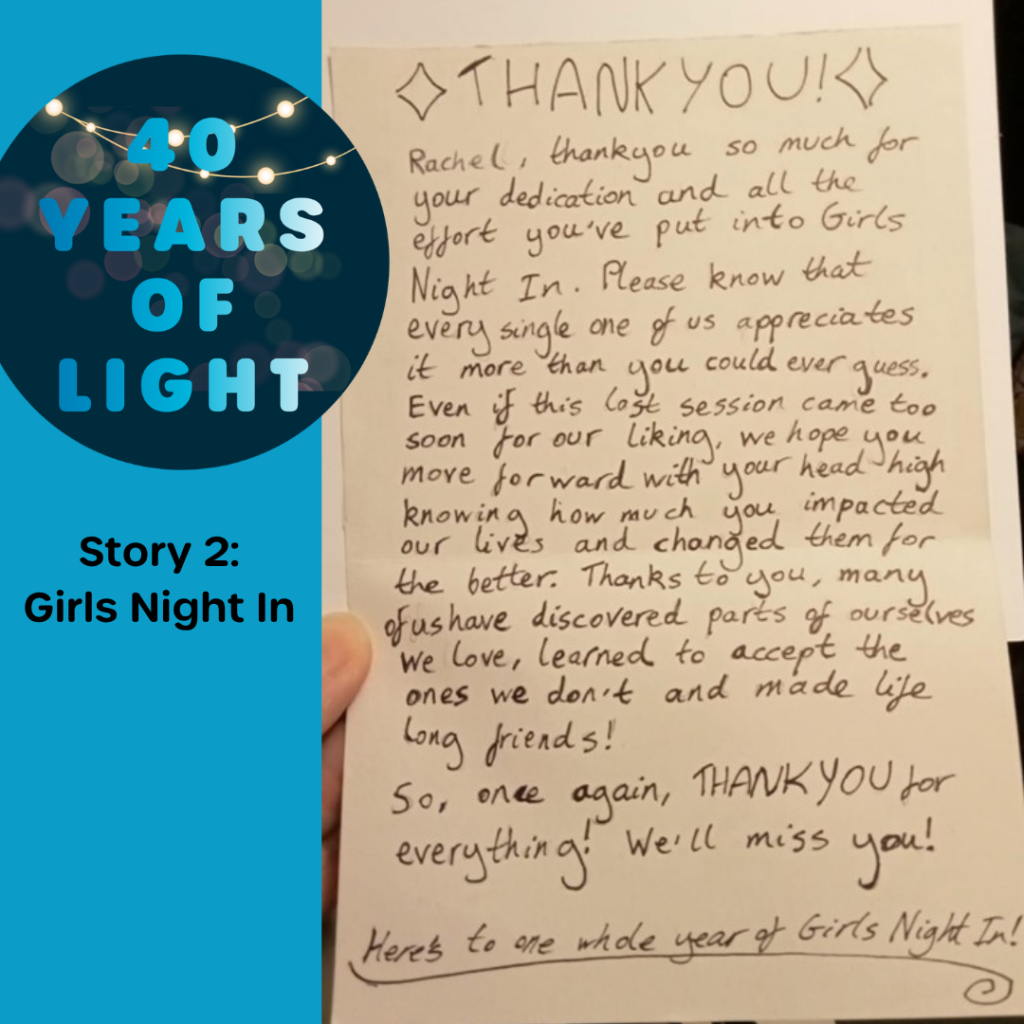 40
YEARS
OF
LIGHT
Story 2:
Girls Night In
THANKYOU!
Rachel, thankyou so much for
your dedication and all the
effort you've put into Girls
Night In. Please know that
every single one of us appreciates
it more than you could ever guess.
Even if this last session came too
soon for our liking, we hope you
move forward with your head high
knowing how much you impacted
our lives and changed them for
the better. Thanks to you, many
of us have discovered parts of ourselves
we love, learned to accept the
ones we don't and made life
long friends!
So, once again, THANKYOU for
everything! We'll miss you!
Here's to one whole year of Girls Night In!